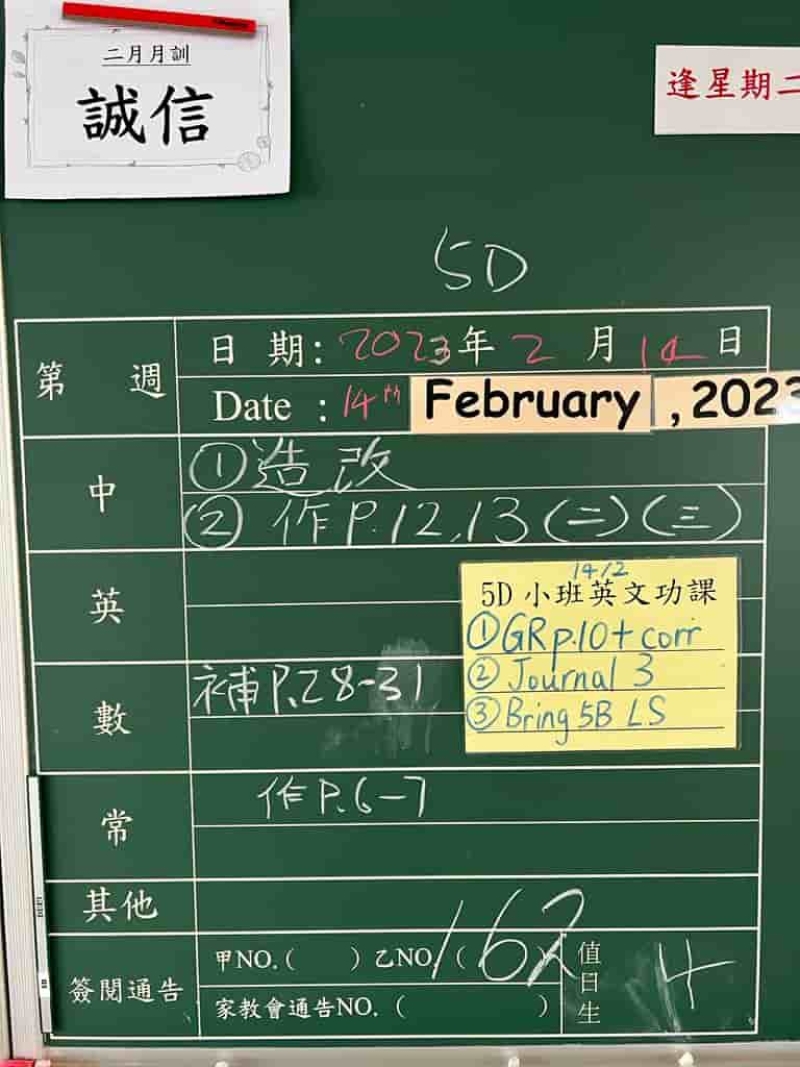 二月月訓
誠信
逢星期二
5D
第 週
日 期: 2023年 2 月 14 日
Date : 14th February , 2023
中
①造改
② 作P.12,13(二)(三)
英
14/2
5D 小班英文功課
①GR p.10 + corr
② Journal 3
③ Bring 5B LS
數
補P.28-31
常
作P.6-7
其他
簽閱通告
甲NO.( ) 乙NO.( 162 )
家教會通告NO.( )
值日生
4